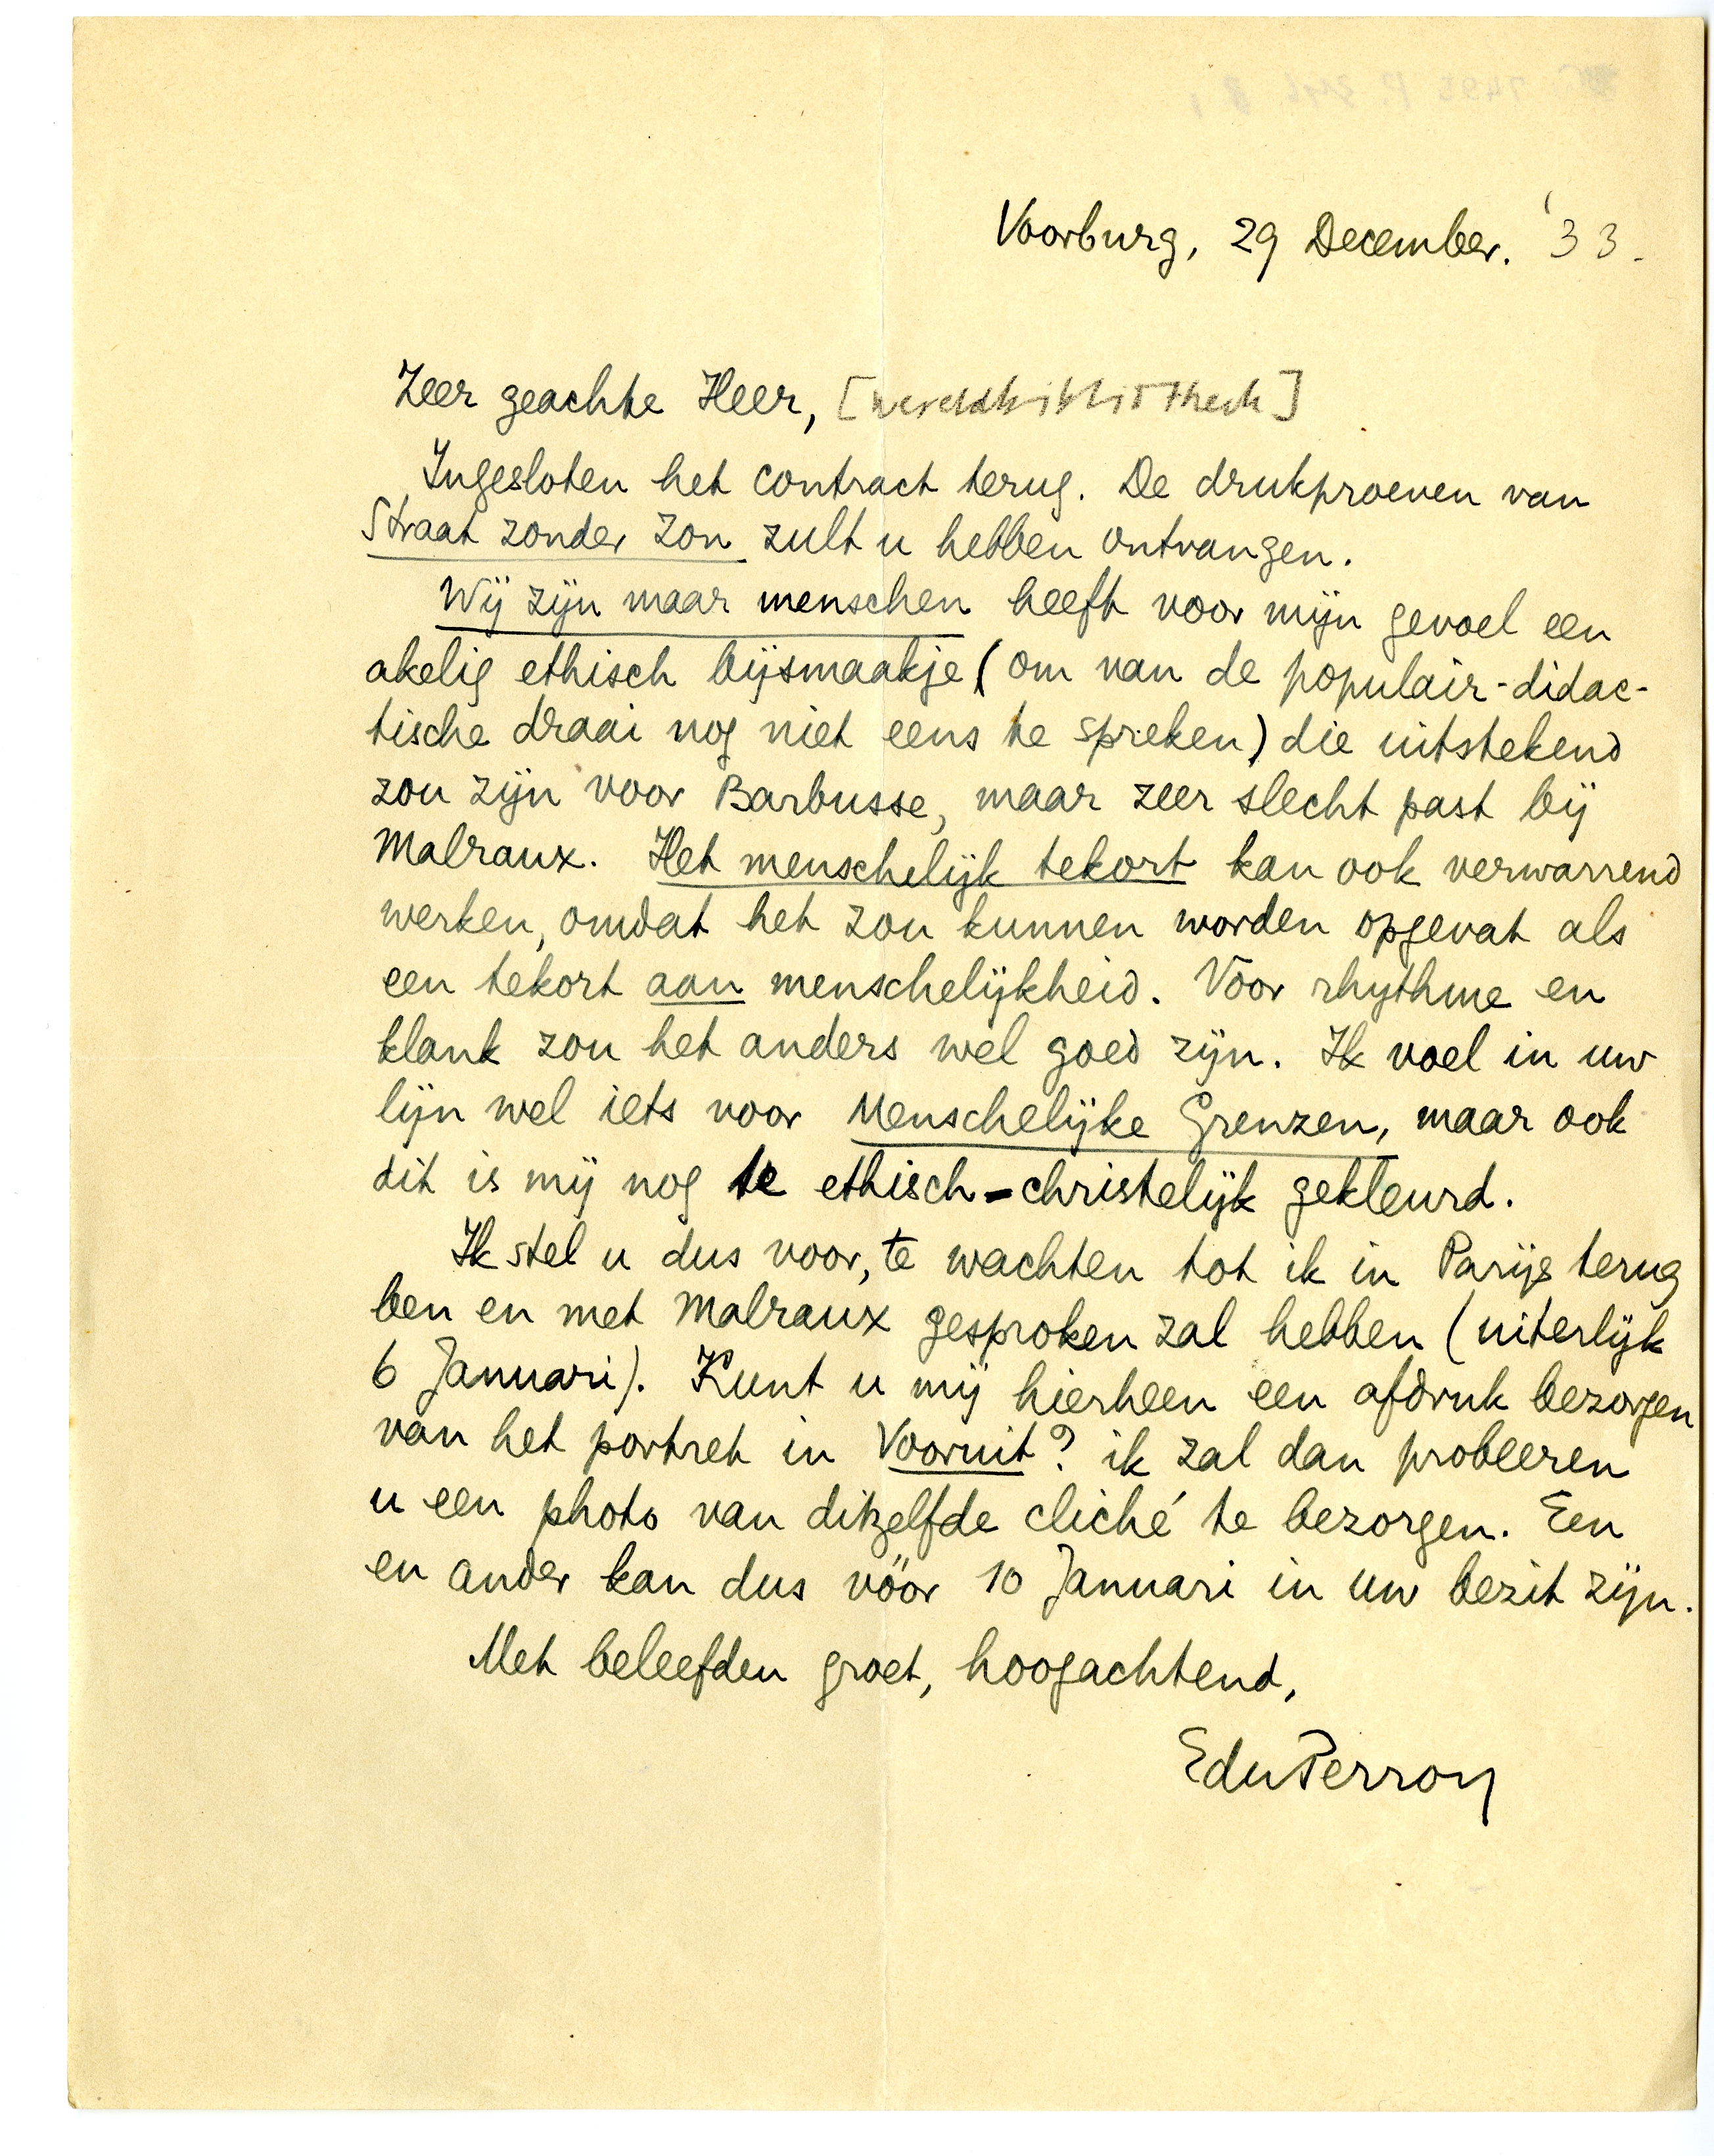 Voorburg, 29 December. '33.
Zeer geachte Heer, [wereldbibliotheek]
Ingesloten het contract terug. De drukproeven van
Straat zonder Zon zult u hebben ontvangen.
Wij zijn maar menschen heeft voor mijn gevoel een
akelig ethisch bijsmaakje (om van de populair-didac-
tische draai nog niet eens te spreken) die uitstekend
zou zijn voor Barbusse, maar zeer slecht past bij
Malraux. Het menschelijk tekort kan ook verwarrend
werken, omdat het zou kunnen worden opgevat als
een tekort aan menschelijkheid. Voor rhythme en
klank zou het anders wel goed zijn. Ik voel in uw
lijn wel iets voor Menschelijke Grenzen, maar ook
dit is mij nog te ethisch-christelijk gekleurd.
Ik stel u dus voor, te wachten tot ik in Parijs terug
ben en met Malraux gesproken zal hebben (uiterlijk
6 Januari). Kunt u mij hierheen een afdruk bezorgen
van het portret in Vooruit? ik zal dan probeeren
u een photo van ditzelfde cliché te bezorgen. Een
en ander kan dus vóór 10 Januari in uw bezit zijn.
Met beleefden groet, hoogachtend,
EduPerron